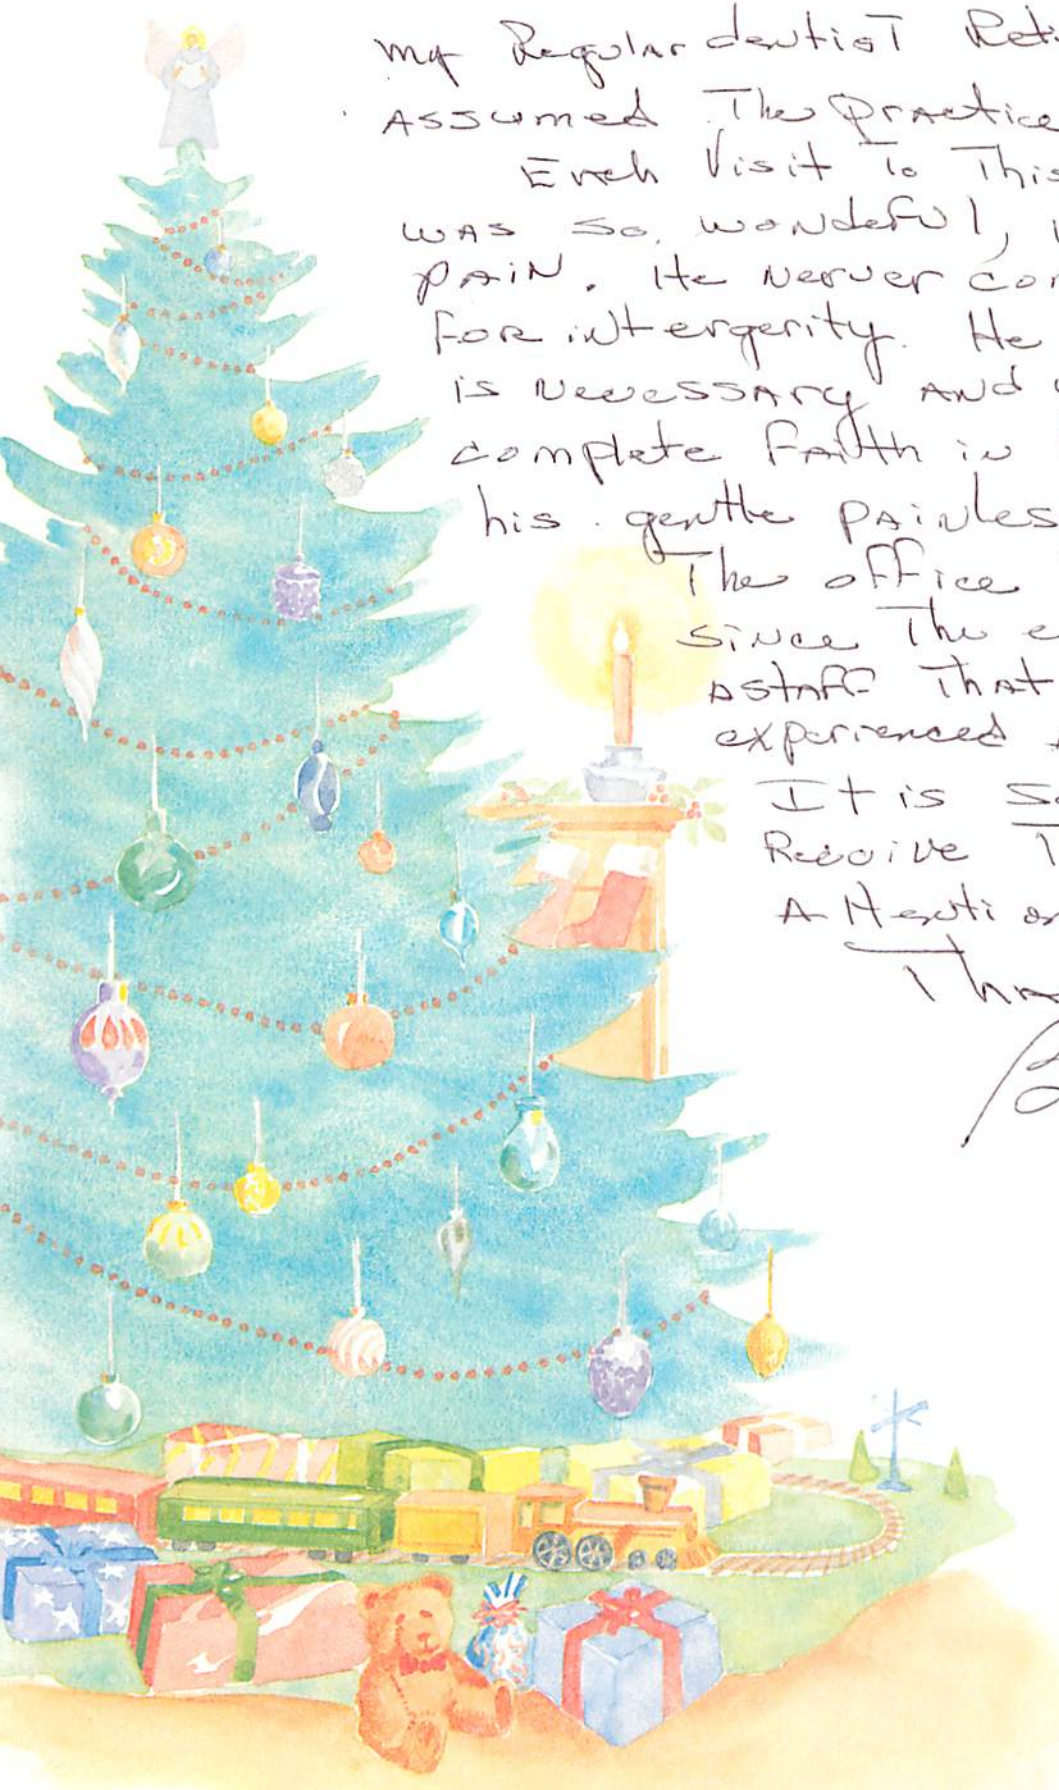 my Regular dentist Reti
Assumed The Practice
Each Visit To This
was so wonderful, i
pain. He nerver con
for intergerity. He
is necessary and
complete faith in
his gentle painles
The office
since The e
astaff That
experienced
It is So
Receive T
Attention
Tha